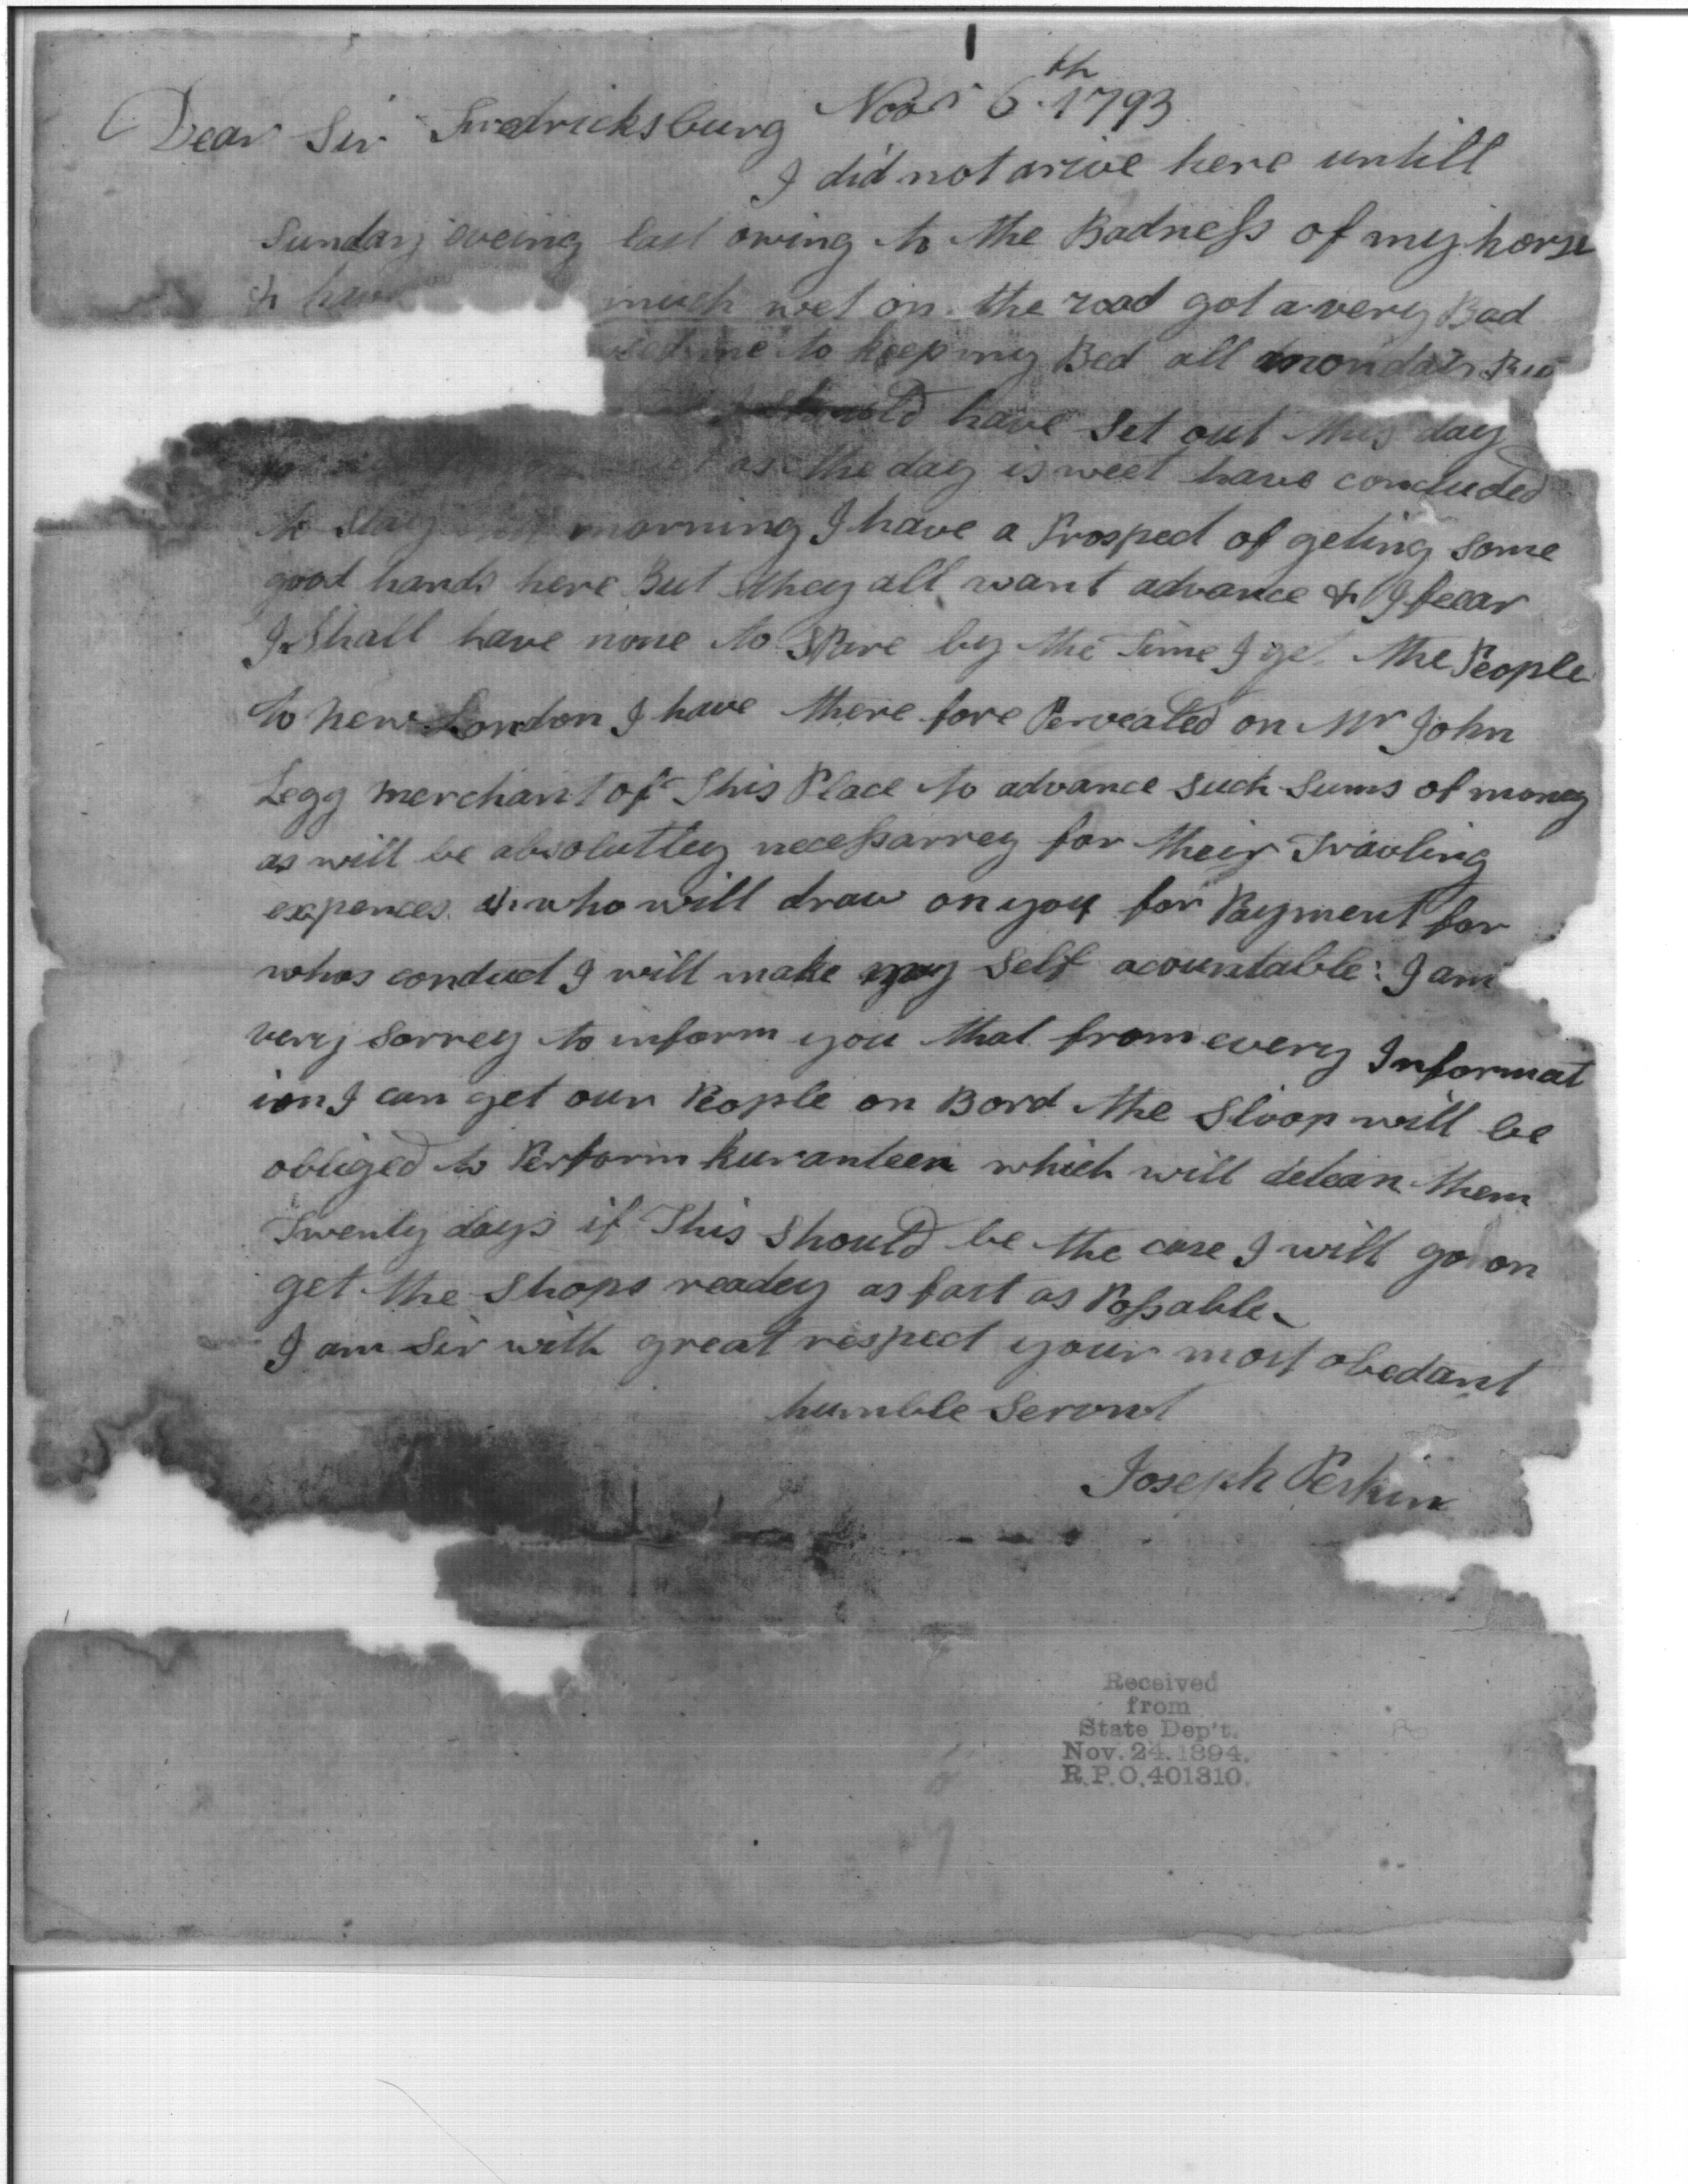 Dear Sir Fredricksburg Novr 6th 1793
I did not arive here untill
Sunday eveing last owing to the Badness of my horse
& have much wet on the road got a very Bad
me to keep my Bed all monday But
I should have set out this day
as the day is weet have concluded
to stay morning I have a Prospect of geting some
good hands here But they all want advance & I feear
I Shall have none to Spare by the Time I get the People
to new London I have there fore Pervealed on Mr John
Legg merchant of This Place to advance such Sums of money
as will be absoluttley necessarrey for their Travling
expences & who will draw on you for Payment for
whos conduct I will make my Self acountable: I am
very sorrey to inform you that from every Informat
ion I can get our People on Bord the Sloop will be
obliged to Perform kuranteen which will detean them
Twenty days if This Should be the case I will go on
get the Shops readey as fast as Possable
I am Sir with great respect your most obedant
humble Servnt
Joseph Perkin
Received
from
State Dep't.
Nov. 24. 1894.
R.P.O. 401310.